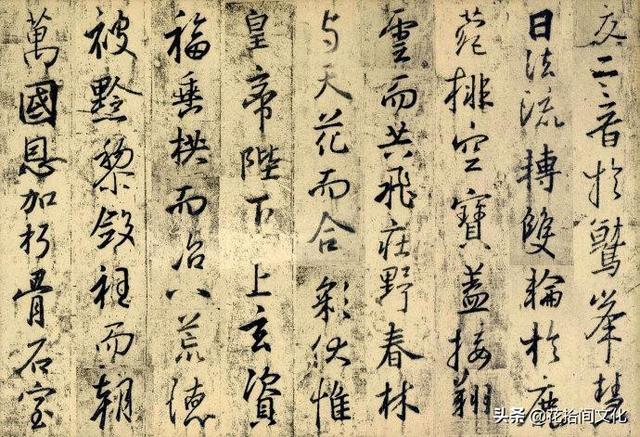 交二音於鷲峯慧
日法流轉雙輪於鹿
菀排空寶蓋接翔
雲而共飛莊野春林
与天花而合彩伏惟
皇帝陛下上玄資
福垂拱而治八荒德
被黔黎斂衽而朝
萬國恩加朽骨石室
头条 @花拾间文化